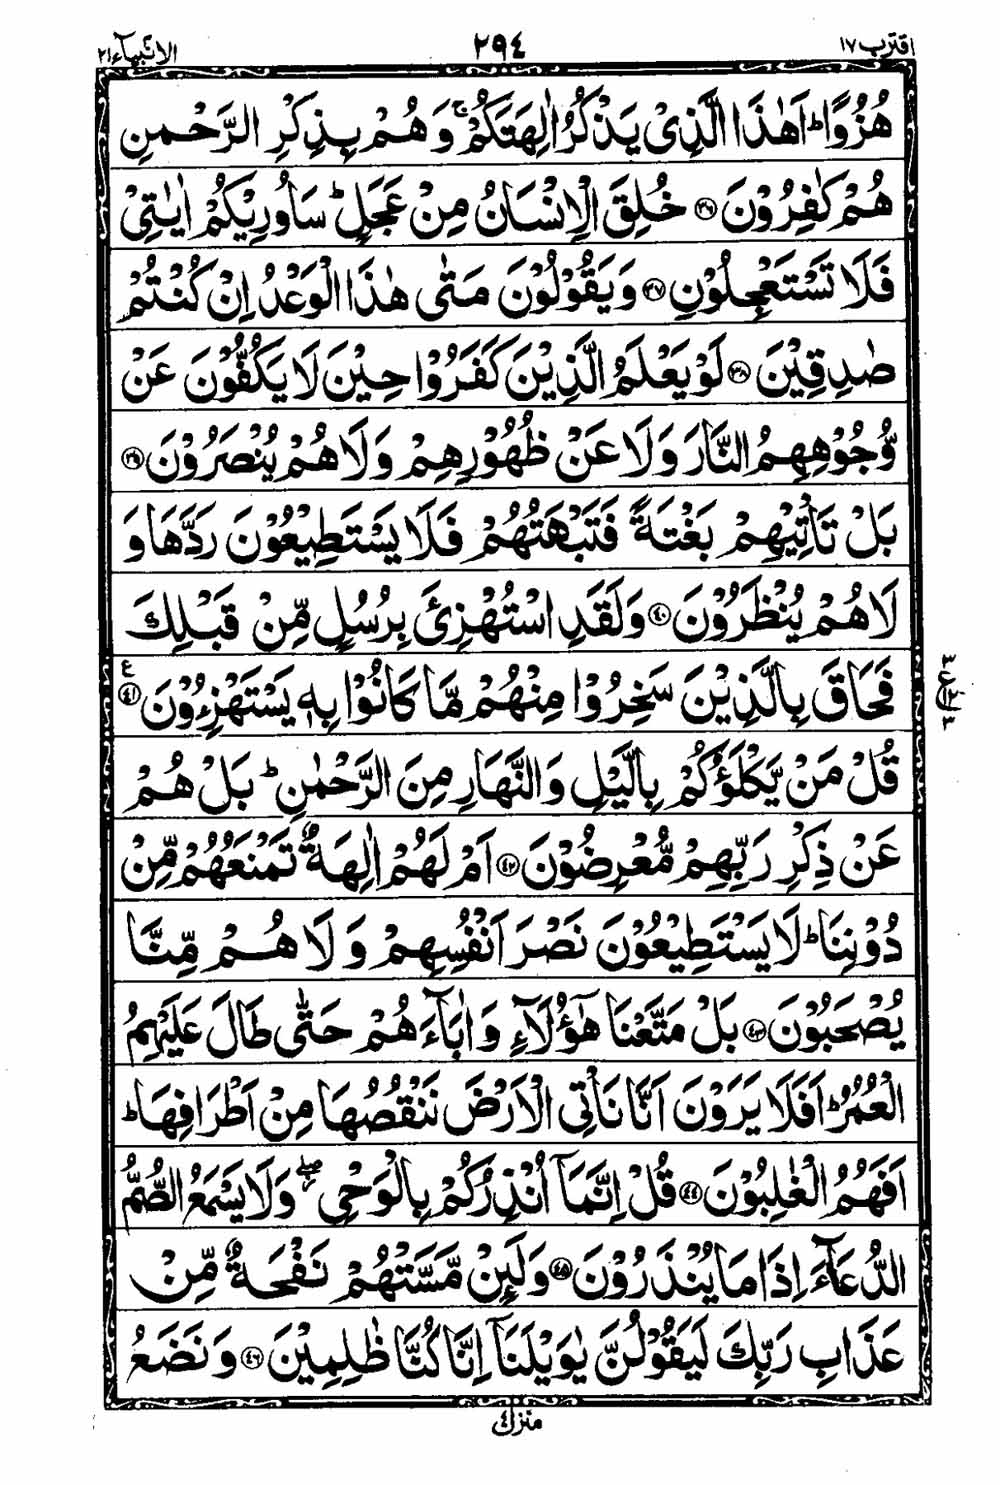 اقترب ١٧ ٢٩٤ الانبيآء ٢١
هُزُوًا ؕ اَهٰذَا الَّذِىْ يَذْكُرُ اٰلِهَتَكُمْ ۚ وَهُمْ بِذِكْرِ الرَّحْمٰنِ
هُمْ كٰفِرُوْنَ ﴿۳۶﴾ خُلِقَ الْاِنْسَانُ مِنْ عَجَلٍ ؕ سَاُورِيْكُمْ اٰيٰتِىْ
فَلَا تَسْتَعْجِلُوْنِ ﴿۳۷﴾ وَيَقُوْلُوْنَ مَتٰى هٰذَا الْوَعْدُ اِنْ كُنْتُمْ
صٰدِقِيْنَ ﴿۳۸﴾ لَوْ يَعْلَمُ الَّذِيْنَ كَفَرُوْا حِيْنَ لَا يَكُفُّوْنَ عَنْ
وُّجُوْهِهِمُ النَّارَ وَلَا عَنْ ظُهُوْرِهِمْ وَلَا هُمْ يُنْصَرُوْنَ ﴿۳۹﴾
بَلْ تَاْتِيْهِمْ بَغْتَةً فَتَبْهَتُهُمْ فَلَا يَسْتَطِيْعُوْنَ رَدَّهَا وَ
لَا هُمْ يُنْظَرُوْنَ ﴿۴۰﴾ وَلَقَدِ اسْتُهْزِئَ بِرُسُلٍ مِّنْ قَبْلِكَ
فَحَاقَ بِالَّذِيْنَ سَخِرُوْا مِنْهُمْ مَّا كَانُوْا بِهٖ يَسْتَهْزِءُوْنَ ﴿۴۱﴾ ع
قُلْ مَنْ يَّكْلَؤُكُمْ بِالَّيْلِ وَالنَّهَارِ مِنَ الرَّحْمٰنِ ؕ بَلْ هُمْ
عَنْ ذِكْرِ رَبِّهِمْ مُّعْرِضُوْنَ ﴿۴۲﴾ اَمْ لَهُمْ اٰلِهَةٌ تَمْنَعُهُمْ مِّنْ
دُوْنِنَا ؕ لَا يَسْتَطِيْعُوْنَ نَصْرَ اَنْفُسِهِمْ وَلَا هُمْ مِّنَّا
يُصْحَبُوْنَ ﴿۴۳﴾ بَلْ مَتَّعْنَا هٰٓؤُلَآءِ وَاٰبَآءَهُمْ حَتّٰى طَالَ عَلَيْهِمُ
الْعُمُرُ ؕ اَفَلَا يَرَوْنَ اَنَّا نَاْتِى الْاَرْضَ نَنْقُصُهَا مِنْ اَطْرَافِهَا ؕ
اَفَهُمُ الْغٰلِبُوْنَ ﴿۴۴﴾ قُلْ اِنَّمَآ اُنْذِرُكُمْ بِالْوَحْىِ ۖ وَلَا يَسْمَعُ الصُّمُّ
الدُّعَآءَ اِذَا مَا يُنْذَرُوْنَ ﴿۴۵﴾ وَلَئِنْ مَّسَّتْهُمْ نَفْحَةٌ مِّنْ
عَذَابِ رَبِّكَ لَيَقُوْلُنَّ يٰوَيْلَنَآ اِنَّا كُنَّا ظٰلِمِيْنَ ﴿۴۶﴾ وَنَضَعُ
منزل ٤